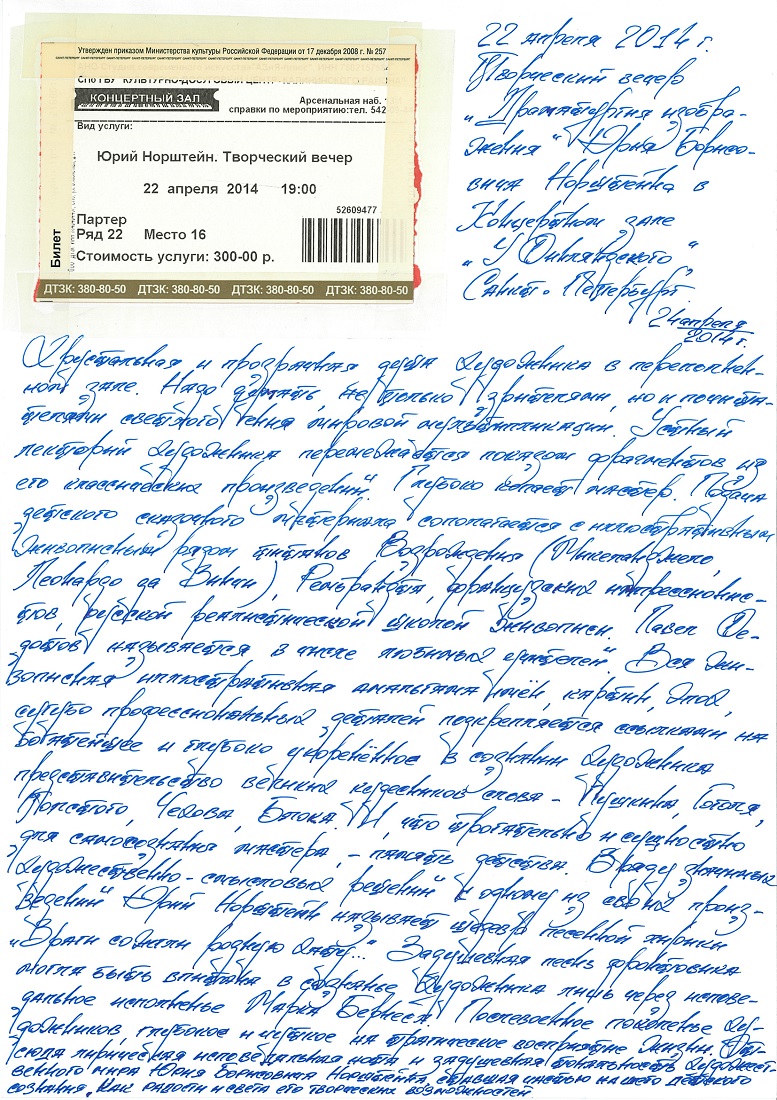 Утвержден приказом Министерства культуры Российской Федерации от 17 декабря 2008 г. № 257
КОНЦЕРТНЫЙ ЗАЛ
Арсенальная наб.
справки по мероприятию:тел. 542
Вид услуги:
Юрий Норштейн. Творческий вечер
22 апреля 2014 19:00
52609477
Партер
Ряд 22 Место 16
Стоимость услуги: 300-00 р.
Билет
ДТЗК: 380-80-50 ДТЗК: 380-80-50 ДТЗК: 380-80-50 ДТЗК: 380-80-50
22 апреля 2014 г.
Творческий вечер
„Драматургия изобра-
жения“ Юрия Борисо-
вича Норштейна в
Концертном зале
„У Финляндского“
Санкт-Петербург.
24 апреля
2014 г.
Хрустальная и прозрачная душа художника в переполнен-
ном зале. Надо думать, не только зрителями, но и почита-
телями светлого гения мировой мультипликации. Устный
лекторий художника перемежается показом фрагментов из
его классических произведений. Глубоко копает мастер. Подача
детского сказочного материала сополагается с иллюстративным
живописным рядом титанов Возрождения (Микеланджело,
Леонардо да Винчи), Рембрандта, французских импрессионис-
тов, русской реалистической школой живописи. Павел Фе-
дотов называется в числе любимых учителей. Вся жи-
вописная иллюстративная амальгама имён, картин, эпох,
сугубо профессиональных деталей подкрепляется ссылками на
богатейшее и глубоко укоренённое в сознании художника
представительство великих кудесников слова – Пушкина, Гоголя,
Толстого, Чехова, Блока. И, что трогательно и сущностно
для самосознания мастера, – память детства. В ряду значимых
художественно-смысловых решений к одному из своих произ-
ведений Юрий Норштейн называет шедевр песенной лирики
„Враги сожгли родную хату...“ Задушевная песнь фронтовика
могла быть впитана в сознанье художника лишь через испове-
дальное исполненье Марка Бернеса. Послевоенное поколенье ху-
дожников, глубокое и чуткое на трагическое восприятие жизни. От-
сюда лирическая исповедальная нота и задушевная тональность художест-
венного мира Юрия Борисовича Норштейна, ставшая частью нашего детского
сознания. Как радости и света его творческих возможностей.